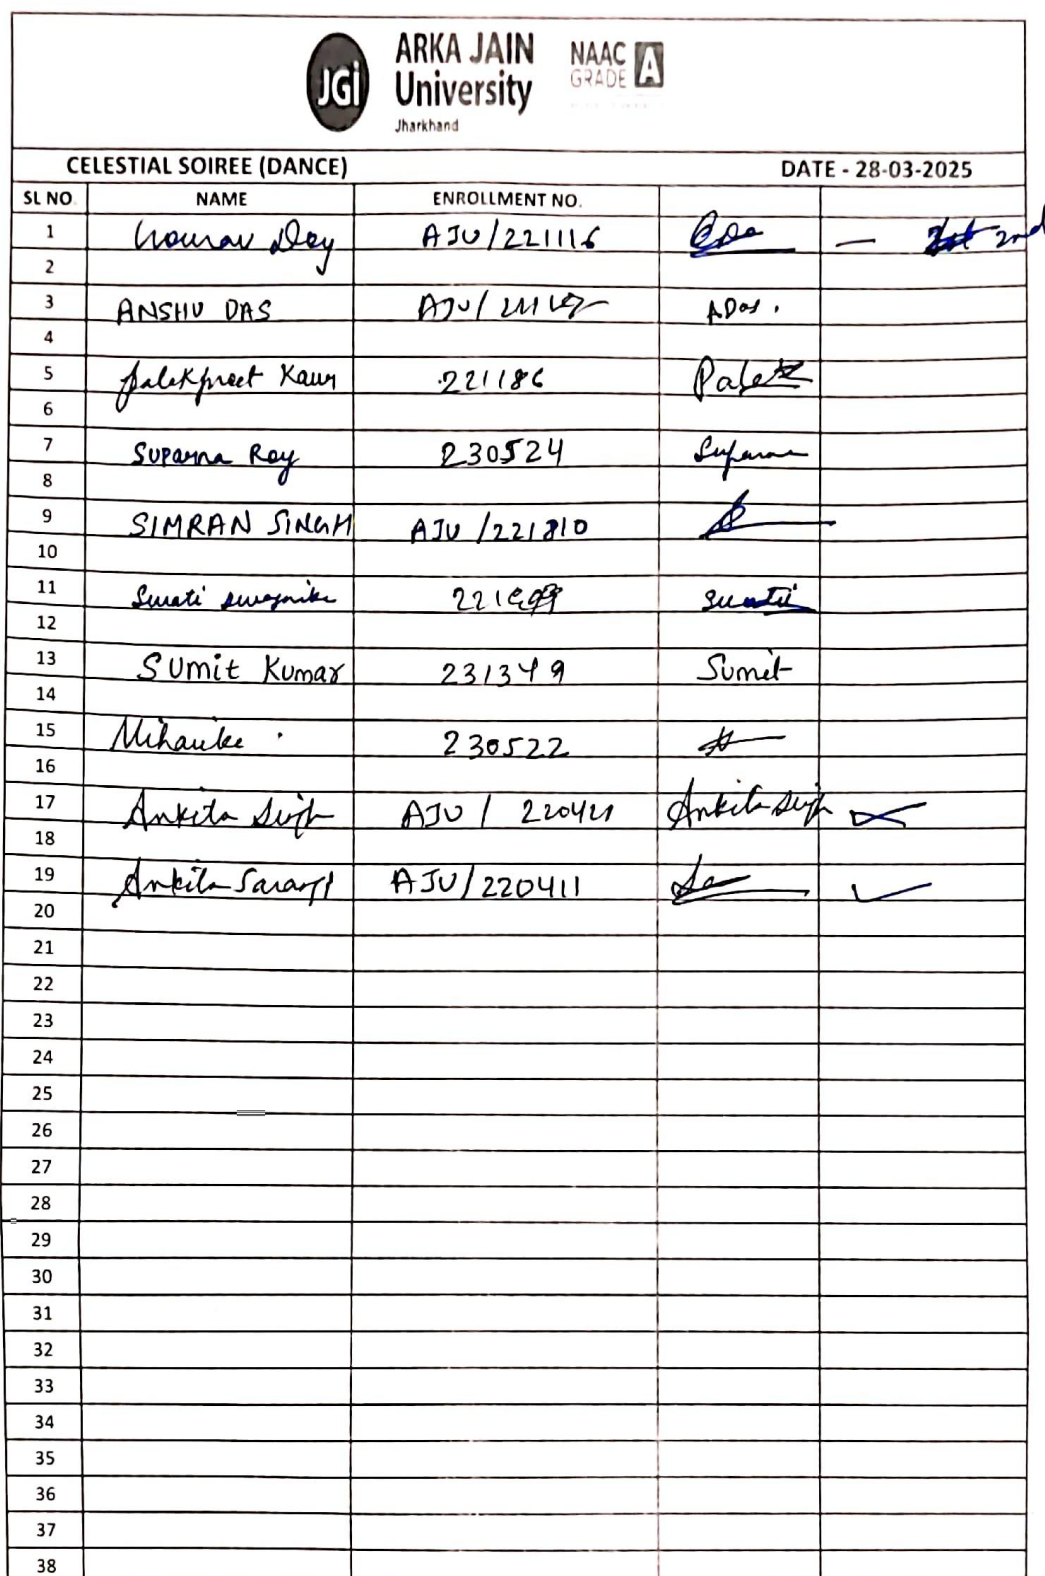 JGi ARKA JAIN University Jharkhand
NAAC GRADE A
CELESTIAL SOIREE (DANCE) DATE - 28-03-2025
SL NO. NAME ENROLLMENT NO.
1 Gourav Dey AJU/221116 — 2nd
2
3 ANSHU DAS ADas.
4
5 Palakpreet Kaur 221186 Palak
6
7 Suparna Roy 230524 Suparna
8
9 SIMRAN SINGH AJU/221810
10
11 Swati Swati
12
13 Sumit Kumar 231349 Sumit
14
15 Niharika 230522
16
17 Ankita Singh AJU / 220421 Ankita Singh
18
19 Ankita Sarangi AJU/220411 ✓
20
21
22
23
24
25
26
27
28
29
30
31
32
33
34
35
36
37
38